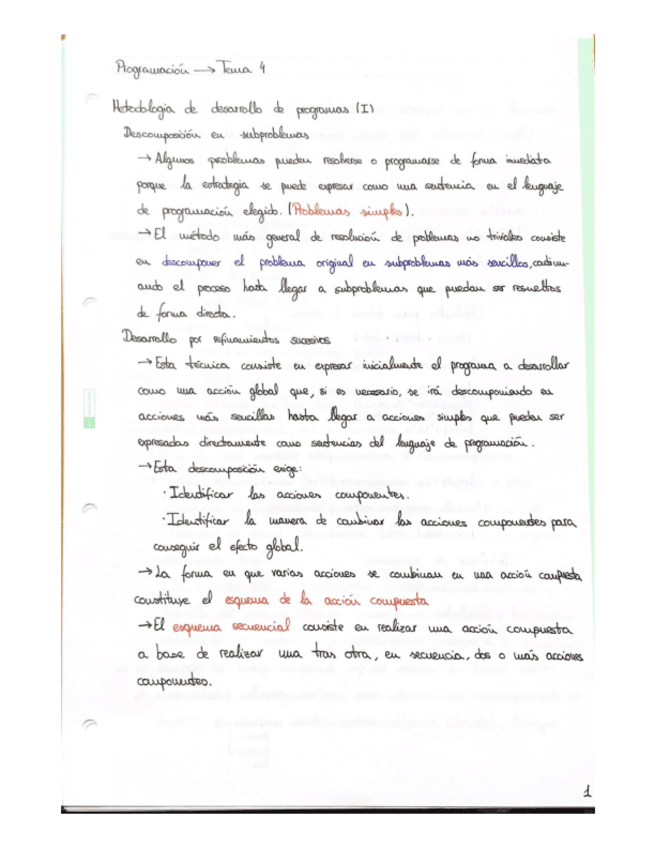 Programación → Tema 4
Metodología de desarrollo de programas (I)
Descomposición en subproblemas
→ Algunos problemas pueden resolverse o programarse de forma inmediata
porque la estrategia se puede expresar como una sentencia en el lenguaje
de programación elegido. (Problemas simples).
→ El método más general de resolución de problemas no triviales consiste
en descomponer el problema original en subproblemas más sencillos, continu-
ando el proceso hasta llegar a subproblemas que puedan ser resueltos
de forma directa.
Desarrollo por refinamientos sucesivos
→ Esta técnica consiste en expresar inicialmente el programa a desarrollar
como una acción global que, si es necesario, se irá descomponiendo en
acciones más sencillas hasta llegar a acciones simples que pueden ser
expresadas directamente como sentencias del lenguaje de programación.
→ Esta descomposición exige:
· Identificar las acciones componentes.
· Identificar la manera de combinar las acciones componentes para
conseguir el efecto global.
→ La forma en que varias acciones se combinan en una acción compuesta
constituye el esquema de la acción compuesta
→ El esquema secuencial consiste en realizar una acción compuesta
a base de realizar una tras otra, en secuencia, dos o más acciones
componentes.
1